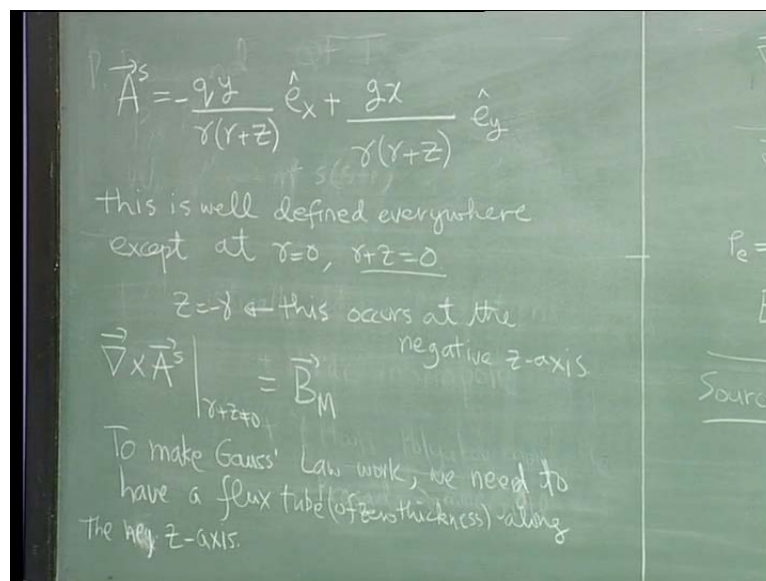 A⃗ˢ = - gy/r(r+z) ê_x + gx/r(r+z) ê_y
this is well defined everywhere
except at r=0, r+z=0.
z=-r ← this occurs at the
negative z-axis
∇⃗×A⃗ˢ|_{r+z≠0} = B⃗_M
To make Gauss' Law work, we need to
have a flux tube (of zero thickness) along
The neg z-axis.
P_e =
Sourc